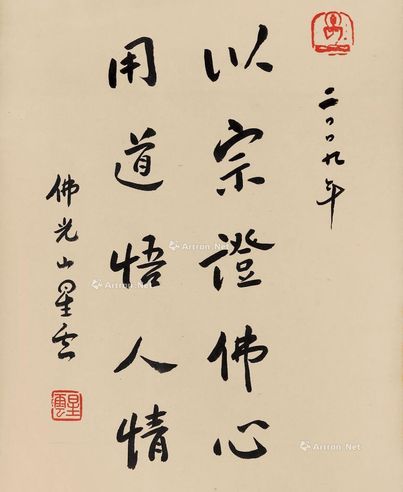 二〇〇九年
以宗證佛心
用道悟人情
佛光山星雲
星雲
Artron.Net
Artron.Net
Artron.Net